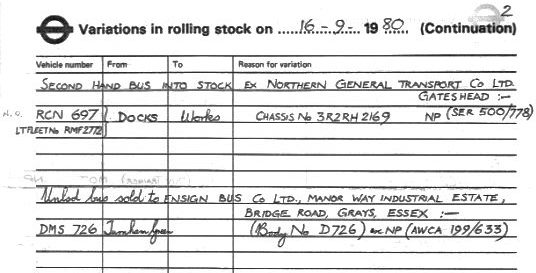 2
Variations in rolling stock on ....16-9-.. 1980. (Continuation)
Vehicle number From To Reason for variation
SECOND HAND BUS INTO STOCK EX NORTHERN GENERAL TRANSPORT CO LTD.
GATESHEAD :-
N.O. RCN 697 DOCKS Works CHASSIS No 3R2RH2169 NP (SER 500/778)
LT FLEET No RMF2772
Unlsd bus sold to ENSIGN BUS CO LTD., MANOR WAY INDUSTRIAL ESTATE,
BRIDGE ROAD, GRAYS, ESSEX :-
DMS 726 Turnham Green (Body No D726) ex NP (AWCA 199/633)